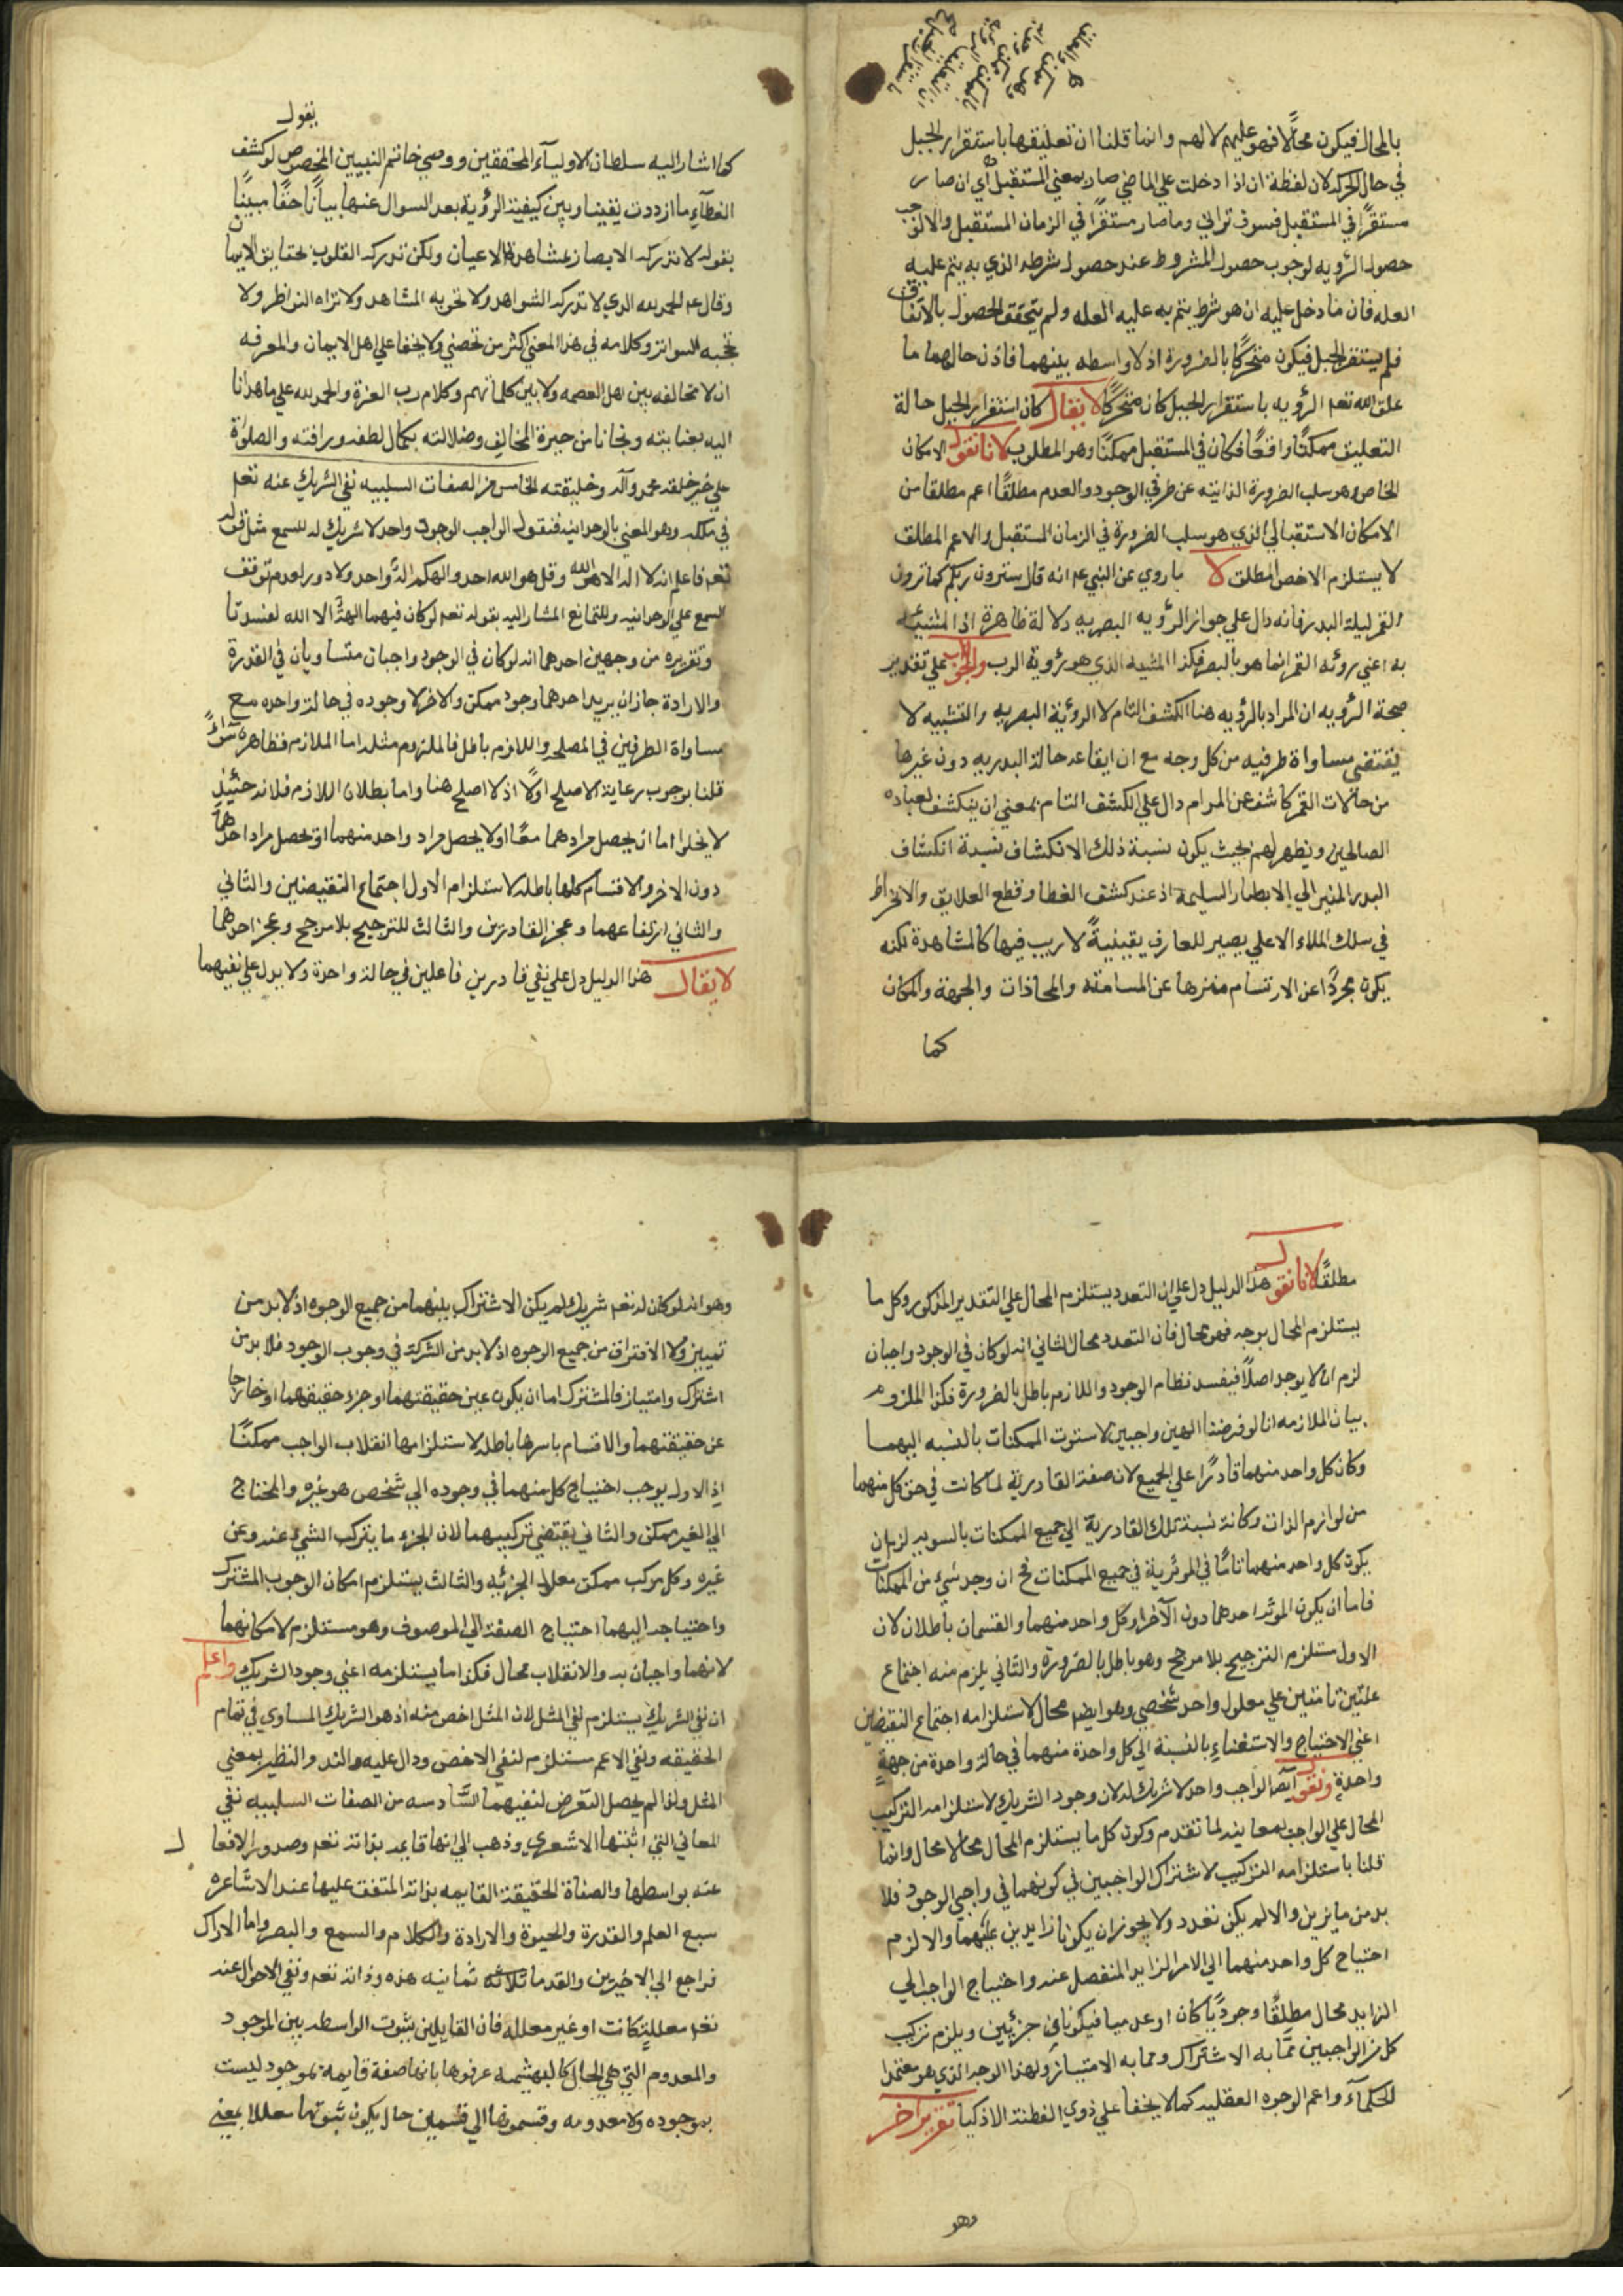 بالمحال فيكون محالًا فهو عليهم لا لهم وانما قلنا ان تعليقها باستقرار الجبل
في حال الحركه لان لفظة ان اذا دخلت علي الماضي صار بمعني المستقبل أي ان صار
مستقرًا في المستقبل فسوف تراني وما صار مستقرًا في الزمان المستقبل والا لوجب
حصول الرؤيه لوجوب حصول المشروط عند حصول شرطه الذي به يتم عليه
العله فان ما دخل عليه ان هو شرط يتم به عليه العله ولم يتحقق الحصول بالاتفاق
فلم يستقر الجبل فيكون متحركًا بالضرورة اذ لا واسطه بينهما فاذن حالهما ما
علق الله تعم الرؤيه باستقرار الجبل كان متحركًا لا يقال كان استقرار الجبل حالة
التعليق ممكنًا واقعًا فكان في المستقبل ممكنًا وهو المطلوب لانا نقول الامكان
الخاص وهو سلب الضرورة الذاتيه عن طرفي الوجود والعدم مطلقًا اعم مطلقا من
الامكان الاستقبالي الذي هو سلب الضرورة في الزمان المستقبل والاعم المطلق
لا يستلزم الاخص المطلق لا ما روي عن النبي عم انه قال سترون ربكم كما ترون
القمر ليلة البدر فانه دال علي جواز الرؤيه البصريه دلالة ظاهرة اذ المشبه
به اعني رؤية القمر انما هو بالبصر فكذا المشبه الذي هو رؤية الرب والجواب علي تقدير
صحة الرؤيه ان المراد بالرؤيه هنا الكشف التام لا الرؤية البصريه والتشبيه لا
يقتضي مساواة طرفيه من كل وجه مع ان ايقاعه حالة البدريه دون غيرها
من حالات القمر كاشف عن المرام دال علي الكشف التام بمعني ان ينكشف لعباده
الصالحين ويظهر لهم بحيث يكون نسبة ذلك الانكشاف نسبة انكشاف
البدر المنير الي الابصار السليمة اذ عند كشف الغطا وقطع العلايق والانخراط
في سلك الملاء الاعلي يصير للعارف يقينيةً لا ريب فيها كالمشاهدة لكنه
يكون مجردًا عن الارتسام منزها عن المسامته والمحاذات والجهة والمكان
كما
يقول
كما اشار اليه سلطان الاوليآء المحققين ووصي خاتم النبيين المخصوص لو كشف
الغطآء ما ازددت يقينا وبين كيفية الرؤية بعد السوال عنها بيانًا حقًا مبينًا
بقوله لا تدركه الابصار بمشاهدة الاعيان ولكن تدركه القلوب بحقايق الايمان
وقال عم الحمد لله الذي لا تدركه الشواهد ولا تحويه المشاهد ولا تراه النواظر ولا
تحجبه السواتر وكلامه في هذا المعني اكثر من تحصي ولا يخفا علي اهل الايمان والمعرفه
ان لا تخالفه بين اهل العصمه ولا بين كلماتهم وكلام رب العزة والحمد لله علي ما هدانا
اليه بعنايته ونجانا من حيرة المخالف وضلالته بكمال لطفه ورافته والصلوة
علي خير خلقه محمد وآله وخليقته الخامس من الصفات السلبيه نفي الشريك عنه تعم
في ملكه وهو المعني بالوحدانيه فنقول الواجب الوجود واحد لا شريك له للسمع مثل قوله
تعم فاعلم انه لا اله الا هو الله وقل هو الله احد والهكم اله واحد ولا دور لعدم توقف
السمع علي الوحدانيه وللتمانع المشار اليه بقوله تعم لو كان فيهما الهة الا الله لفسدتا
وتقريره من وجهين احدهما انه لو كان في الوجود واجبان متساويان في القدرة
والارادة جاز ان يريد احدهما وجود ممكن والاخر لا وجوده في حالة واحده مع
مساواة الطرفين في المصلحه واللازم باطل فالملزوم مثله اما الملازمه فظاهرة سواءً
قلنا بوجوب رعاية الاصلح اولًا اذ لا اصلح هنا واما بطلان اللازم فلانه حينئذٍ
لا يخلوا اما ان يحصل مرادهما معًا او لا يحصل مراد واحد منهما او يحصل مراد احدهما
دون الاخر والاقسام كلها باطله لاستلزام الاول اجتماع النقيضين والثاني
والثاني ارتفاعهما وعجز القادرين والثالث للترجيح بلا مرجح وعجز احدهما
لا يقال هذا الدليل دل علي نفي قادرين فاعلين في حالة واحدة ولا يدل علي نفيهما
مطلقًا لانا نقول هذا الدليل دل علي ان التعدد يستلزم المحال علي التقدير المذكور وكل ما
يستلزم المحال بوجه فهو محال فان التعدد محال الثاني انه لو كان في الوجود واجبان
لزم ان لا يوجد اصلًا فيفسد نظام الوجود واللازم باطل بالضرورة فكذا الملزوم
بيان الملازمه انا لو فرضنا الهين واجبين لاستوت الممكنات بالنسبه اليهما
وكان كل واحد منهما قادرًا علي الجميع لان صفة القادرية لما كانت في حق كل منهما
من لوازم الذات وكانت نسبة تلك القادرية الي جميع الممكنات بالسويه لزم ان
يكون كل واحد منهما تامًا في الموثرية في جميع الممكنات فح ان وجد شيء من الممكنات
فاما ان يكون الموثر احدهما دون الآخر او كل واحد منهما والقسمان باطلان لان
الاول مستلزم الترجيح بلا مرجح وهو باطل بالضرورة والثاني يلزم منه اجتماع
علتين تامتين علي معلول واحد شخصي وهو ايضم محال لاستلزامه اجتماع النقيضين
اعني الاحتياج والاستغناء بالنسبة الي كل واحدة منهما في حالة واحدة من جهةٍ
واحدةٍ ونقول ايضًا الواجب واحد لا شريك له لان وجود الشريك لاستلزامه التركيب
المحال علي الواجب لما تقدم وكون كل ما يستلزم المحال محالا محال وانما
قلنا باستلزامه التركيب لاشتراك الواجبين في كونهما في واجبي الوجود فلا
بد من مايزين والا لم يكن تعدد ولا يجوز ان يكونا زايدين عليهما والا لزم
احتياج كل واحد منهما الي الامر الزايد المنفصل عنه واحتياج الواجب الي
الزايد محال مطلقًا وجوديًا كان او عدميا فيكونان جزئيين ويلزم تركيب
كل من الواجبين عمّا به الاشتراك ومما به الامتياز ولهذا الوجه الذي هو معتمد
الحكمآء واعم الوجوه العقليه كما لا يخفا علي ذوي الفطنة الاذكيا تقرير اخر
وهو
وهو انه لو كان له تعم شريك لم يكن الاشتراك بينهما من جميع الوجوه اذ لا بد من
تمييز ولا الافتراق من جميع الوجوه اذ لا بد من الشركة في وجوب الوجود فلا بد من
اشتراك وامتياز فالمشترك اما ان يكون عين حقيقتهما او جزء حقيقتهما او خارجا
عن حقيقتهما والاقسام باسرها باطله لاستلزامها انقلاب الواجب ممكنًا
اذ الاول يوجب احتياج كل منهما في وجوده الي شخص هو غيره والمحتاج
الي الغير ممكن والثاني يقتضي تركيبهما لان الجزء ما يتركب الشيء عنه وعن
غيره وكل مركب ممكن معلول الجزئيه والثالث يستلزم امكان الوجوب المشترك
واحتياجه اليهما احتياج الصفة الي الموصوف وهو مستلزم لامكانهما
لانهما واجبان به والانقلاب محال فكذا ما يستلزمه اعني وجود الشريك واعلم
ان نفي الشريك يستلزم نفي المثل لان المثل اخص منه اذ هو الشريك المساوي في تمام
الحقيقه ونفي الاعم مستلزم لنفي الاخص ودال عليه والند والنظير بمعني
المثل ولذا لم يحصل التعرض لنفيهما السّادسه من الصفات السلبيه نفي
المعاني التي اثبتها الاشعري وذهب الي انها قايمه بذاته تعم وصدور الافعال
عنه بواسطها والصفاة الحقيقة القايمه بذاته المتفق عليها عند الاشاعره
سبع العلم والقدرة والحيوة والارادة والكلام والسمع والبصر واما الادراك
فراجع الي الاخيرين والقدما ثلاثه ثمانيه هذه وذاته تعم ونفي الاحوال عنه
تعم معللة كانت او غير معلله فان القايلين بثبوت الواسطه بين الموجود
والمعدوم التي هي الحال كالبهشيمه عرفوها بانها صفة قايمة بموجود ليست
بموجوده ولا معدومه وقسموها الي قسمين حال يكون ثبوتها معللا بمعني